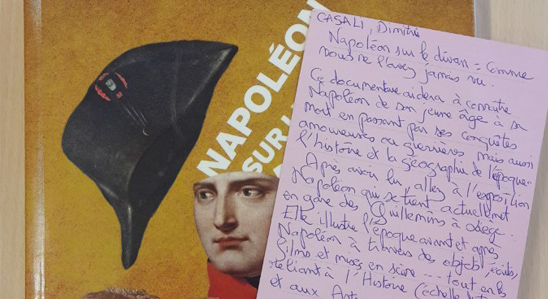 NAPOLÉON
SUR L
CASALI, Dimitri
Napoléon sur le divan = Comme
vous ne l'avez jamais vu.
Ce documentaire aidera à connaître
Napoléon de son jeune âge à sa
mort en passant par ses conquêtes
amoureuses ou guerrières mais aussi
l'histoire et la géographie de l'époque.
Après avoir lu, allez à l'exposition
Napoléon qui se tient actuellement
en gare des Guillemins à Liège.
Elle illustre l'époque avant et après
Napoléon à travers des objets, écrits,
films et mises en scène ... tout en les
reliant à l'Histoire (échelle
et aux Arts